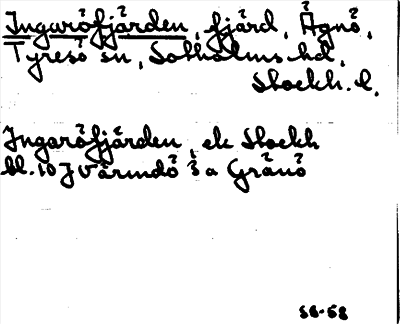 Ingaröfjärden, fjärd, Ägnö,
Tyresö sn, Sotholms hd,
Stockh. l.
Ingaröfjärden, ek Stockh
bl. 10 J Värmdö s a Granö
58-58